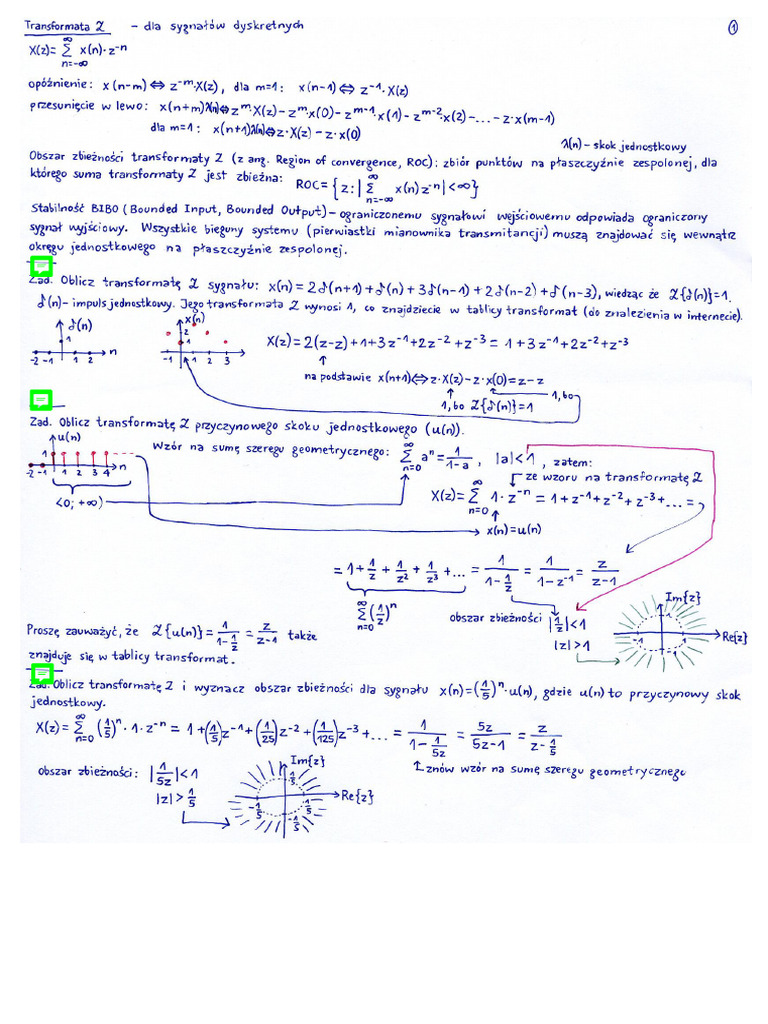 Transformata Z - dla sygnałów dyskretnych ①
X(z)= ∞ Σ n=-∞ x(n)·z⁻ⁿ
opóźnienie: x(n-m)⇔z⁻ᵐ·X(z), dla m=1: x(n-1)⇔z⁻¹·X(z)
przesunięcie w lewo: x(n+m)𝟙(n)⇔zᵐ·X(z)-zᵐ·x(0)-zᵐ⁻¹·x(1)-zᵐ⁻²·x(2)-...-z·x(m-1)
dla m=1: x(n+1)𝟙(n)⇔z·X(z)-z·x(0)
𝟙(n)-skok jednostkowy
Obszar zbieżności transformaty Z (z ang. Region of convergence, ROC): zbiór punktów na płaszczyźnie zespolonej, dla
którego suma transformaty Z jest zbieżna: ROC={z:|∞ Σ n=-∞ x(n)z⁻ⁿ|<∞}
Stabilność BIBO (Bounded Input, Bounded Output)-ograniczonemu sygnałowi wejściowemu odpowiada ograniczony
sygnał wyjściowy. Wszystkie bieguny systemu (pierwiastki mianownika transmitancji) muszą znajdować się wewnątrz
okręgu jednostkowego na płaszczyźnie zespolonej.
Zad. Oblicz transformatę Z sygnału: x(n)=2δ(n+1)+δ(n)+3δ(n-1)+2δ(n-2)+δ(n-3), wiedząc że Z{δ(n)}=1.
δ(n)-impuls jednostkowy. Jego transformata Z wynosi 1, co znajdziecie w tablicy transformat (do znalezienia w internecie).
δ(n) 1 -2 -1 1 2 n
x(n) 2 1 -1 1 2 3
X(z)=2(z-z)+1+3z⁻¹+2z⁻²+z⁻³=1+3z⁻¹+2z⁻²+z⁻³
na podstawie x(n+1)⇔z·X(z)-z·x(0)=z-z
1, bo Z{δ(n)}=1 1, bo
Zad. Oblicz transformatę Z przyczynowego skoku jednostkowego (u(n)).
u(n) 1 -2 -1 1 2 3 4 n
<0; +∞)
Wzór na sumę szeregu geometrycznego: ∞ Σ n=0 aⁿ=1/(1-a), |a|<1, zatem:
ze wzoru na transformatę Z
X(z)= ∞ Σ n=0 1·z⁻ⁿ=1+z⁻¹+z⁻²+z⁻³+...=
x(n)=u(n)
=1+1/z+1/z²+1/z³+...=1/(1-1/z)=1/(1-z⁻¹)=z/(z-1)
∞ Σ n=0 (1/z)ⁿ
obszar zbieżności |1/z|<1
|z|>1
Im{z} 1 1 Re{z}
Proszę zauważyć, że Z{u(n)}=1/(1-1/z)=z/(z-1) także
znajduje się w tablicy transformat.
Zad. Oblicz transformatę Z i wyznacz obszar zbieżności dla sygnału x(n)=(1/5)ⁿ·u(n), gdzie u(n) to przyczynowy skok
jednostkowy.
X(z)= ∞ Σ n=0 (1/5)ⁿ·1·z⁻ⁿ=1+(1/5)z⁻¹+(1/25)z⁻²+(1/125)z⁻³+...=1/(1-1/5z)=5z/(5z-1)=z/(z-1/5)
znów wzór na sumę szeregu geometrycznego
obszar zbieżności: |1/5z|<1
|z|>1/5
Im{z} 1/5 -1/5 1/5 -1/5 Re{z}